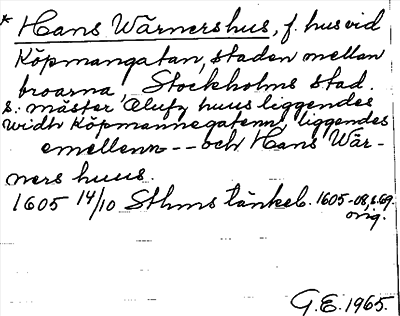 * Hans Wärnershus, f. hus vid
Köpmangatan, staden mellan
broarna, Stockholms stad.
s: mäster Olufz huus liggendes
widh Köpmannegatenn, liggendes
emellenn -- och Hans Wär-
ners huus.
1605 14/10 Sthms tänkeb. 1605-08, s. 69.
orig.
G.E. 1965.